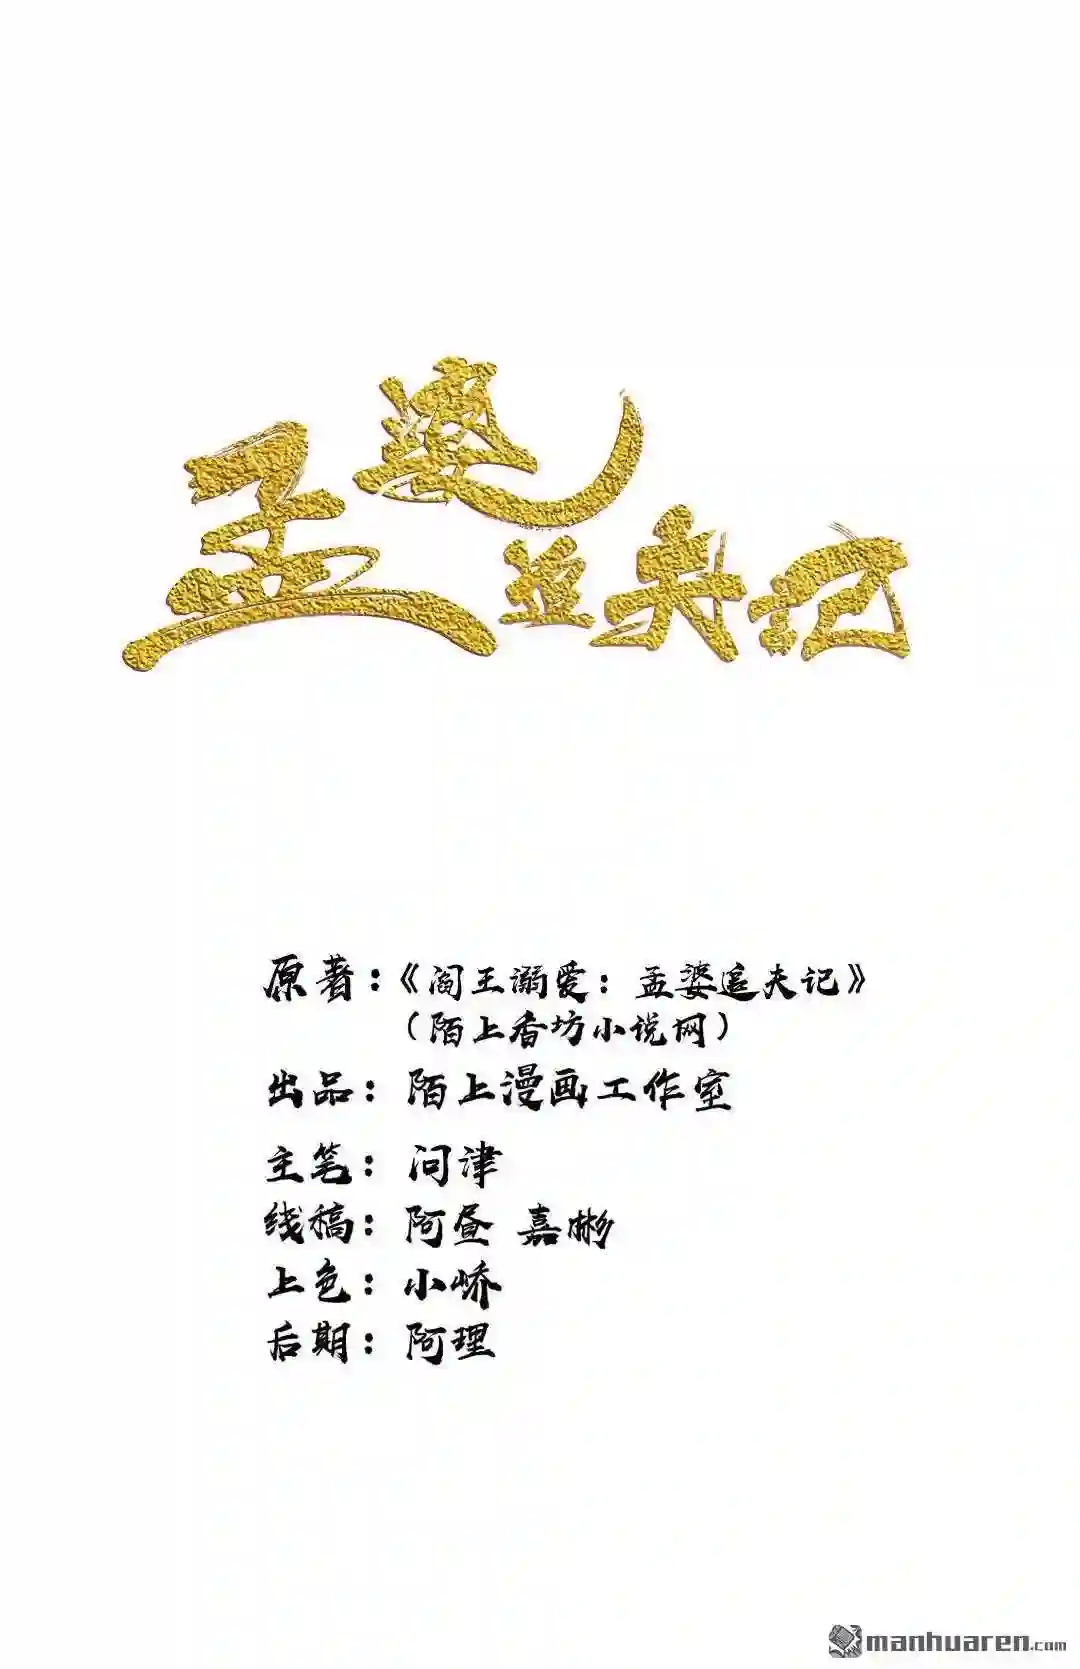 孟婆追夫记
原著：《阎王溺爱：孟婆追夫记》
（陌上香坊小说网）
出品：陌上漫画工作室
主笔：问津
线稿：阿昼 嘉彬
上色：小峤
后期：阿理
manhuaren.com